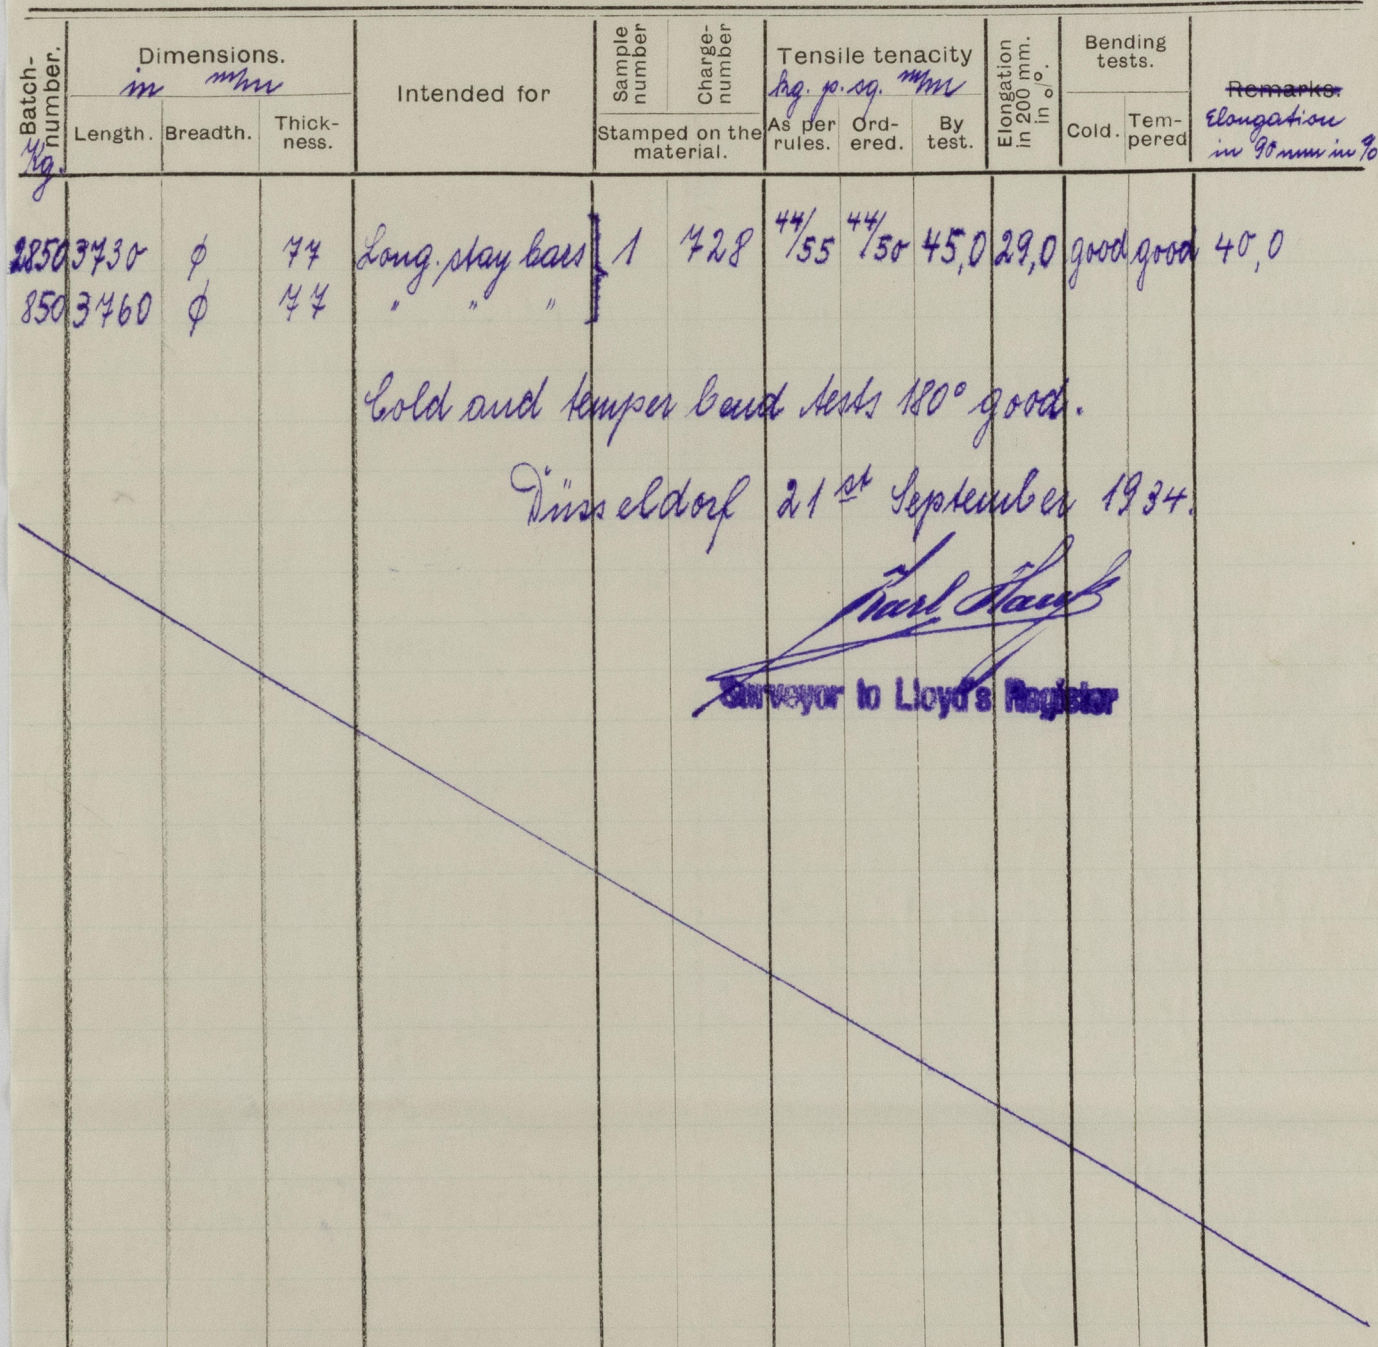 Batch-number. Kg. Dimensions. in m/m Length. Breadth. Thick-ness. Intended for Sample number Charge-number Stamped on the material. Tensile tenacity kg. p. sq. m/m As per rules. Ord-ered. By test. Elongation in 200 mm. in %. Bending tests. Cold. Tem-pered Remarks. Elongation in 90 mm in %
2850 3730 ϕ 77 Long. stay bars 1 728 44/55 44/50 45,0 29,0 good good 40,0
850 3760 ϕ 77 " " "
Cold and temper bend tests 180° good.
Düsseldorf 21st September 1934.
Karl
Surveyor to Lloyd's Register